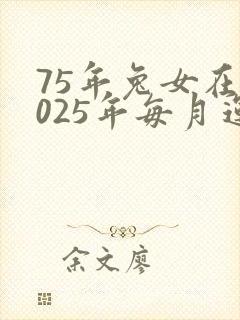 75年兔女在
025年每月运
余文廖